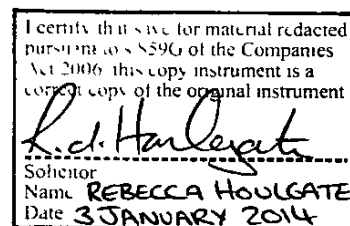 I certify that save for material redacted
pursuant to s 859G of the Companies
Act 2006 this copy instrument is a
correct copy of the original instrument
R.d. Houlgate
Solicitor
Name REBECCA HOULGATE
Date 3 JANUARY 2014